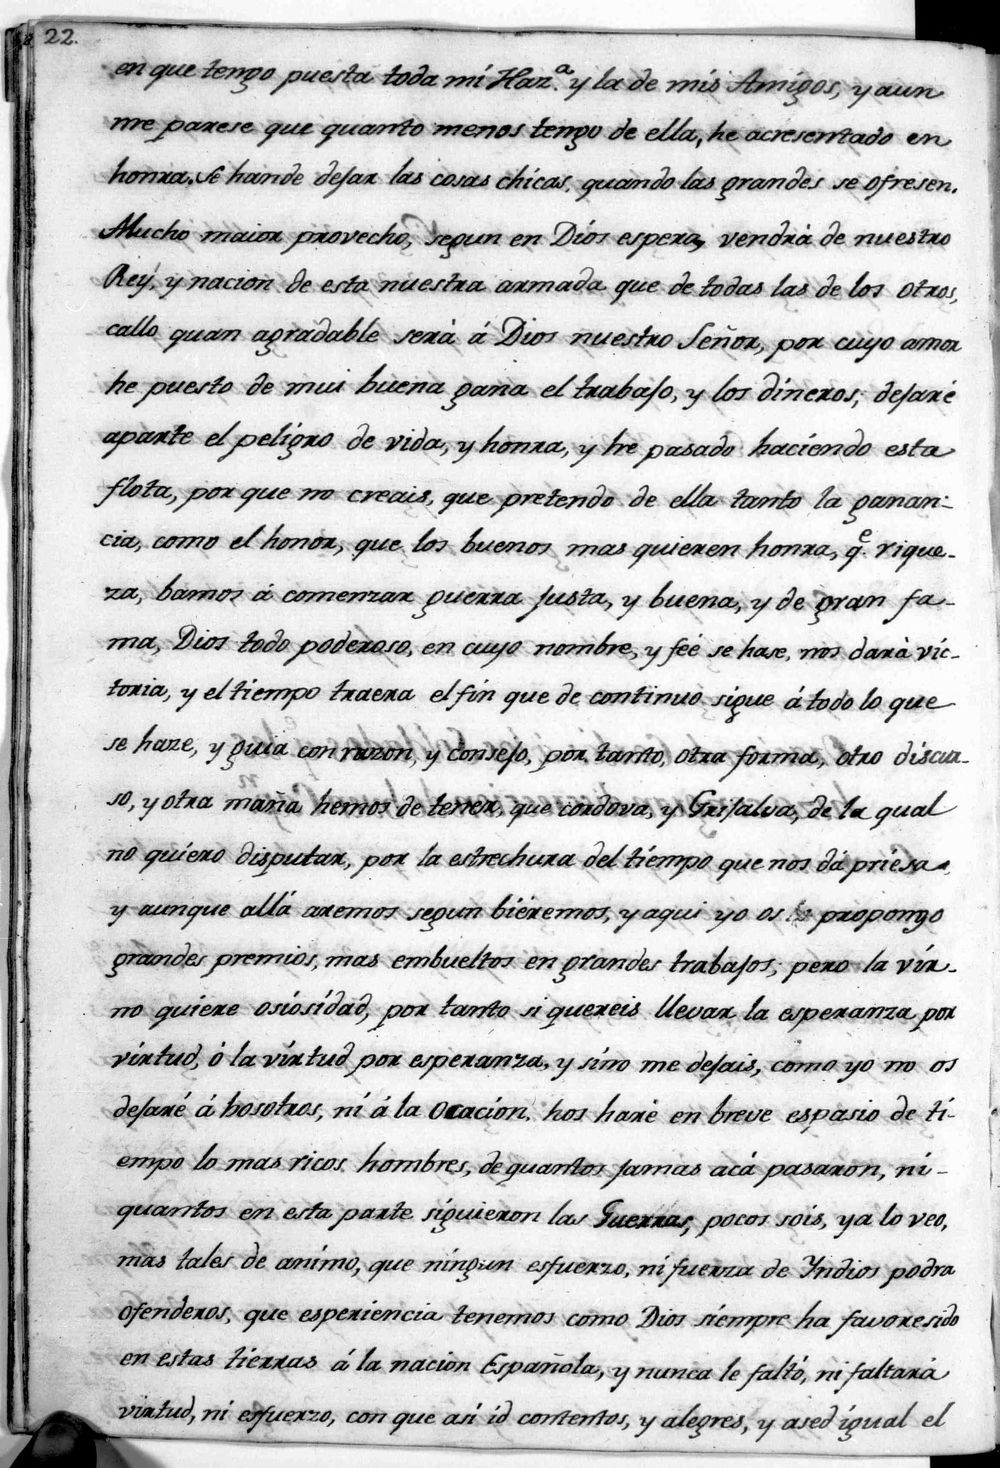 22.
en que tengo puesta toda mi Haz.ª y la de mis Amigos, y aun
me parese que quanto menos tengo de ella, he acresentado en
honra. Se hande dejar las cosas chicas, quando las grandes se ofresen.
Mucho maior provecho, segun en Dios espero, vendrà de nuestro
Rey, y nacion de esta nuestra armada que de todas las de los otros,
callo quan agradable serà á Dios nuestro Señor, por cuyo amor
he puesto de mui buena gana el trabajo, y los dineros; dejaré
aparte el peligro de vida, y honra, y he pasado haciendo esta
flota, por que no creais, que pretendo de ella tanto la ganan-
cia, como el honor, que los buenos mas quieren honra, q.e rique-
za, bamos á comenzar guerra justa, y buena, y de gran fa-
ma, Dios todo poderoso, en cuyo nombre, y feé se hase, nos darà vic-
toria, y el tiempo traera el fin que de continuo sigue á todo lo que
se haze, y guia con razon, y consejo, por tanto, otra forma, otro discur-
so, y otra maña hemos de tener, que cordova, y Grijalva, de la qual
no quiero disputar, por la estrechura del tiempo que nos dá priesa,
y aunque allá aremos segun biéremos, y aqui yo os propongo
grandes premios, mas embueltos en grandes trabajos; pero la vir-
no quiere osiosidad, por tanto si quereis llevar la esperanza por
virtud, ó la virtud por esperanza, y sino me dejais, como yo no os
dejaré á bosotros, ni á la Ocación, hos haré en breve espasio de ti-
empo lo mas ricos hombres, de quantos jamas acá pasaron, ni-
quantos en esta parte siguieron las Guerras, pocos sois, ya lo veo,
mas tales de animo, que ningun esfuerzo, ni fuerza de Yndios podra
ofenderos, que esperiencia tenemos como Dios siempre ha favoresido
en estas tierras á la nacion Española, y nunca le faltó, ni faltarà
virtud, ni esfuerzo, con que asi id contentos, y alegres, y ased igual el